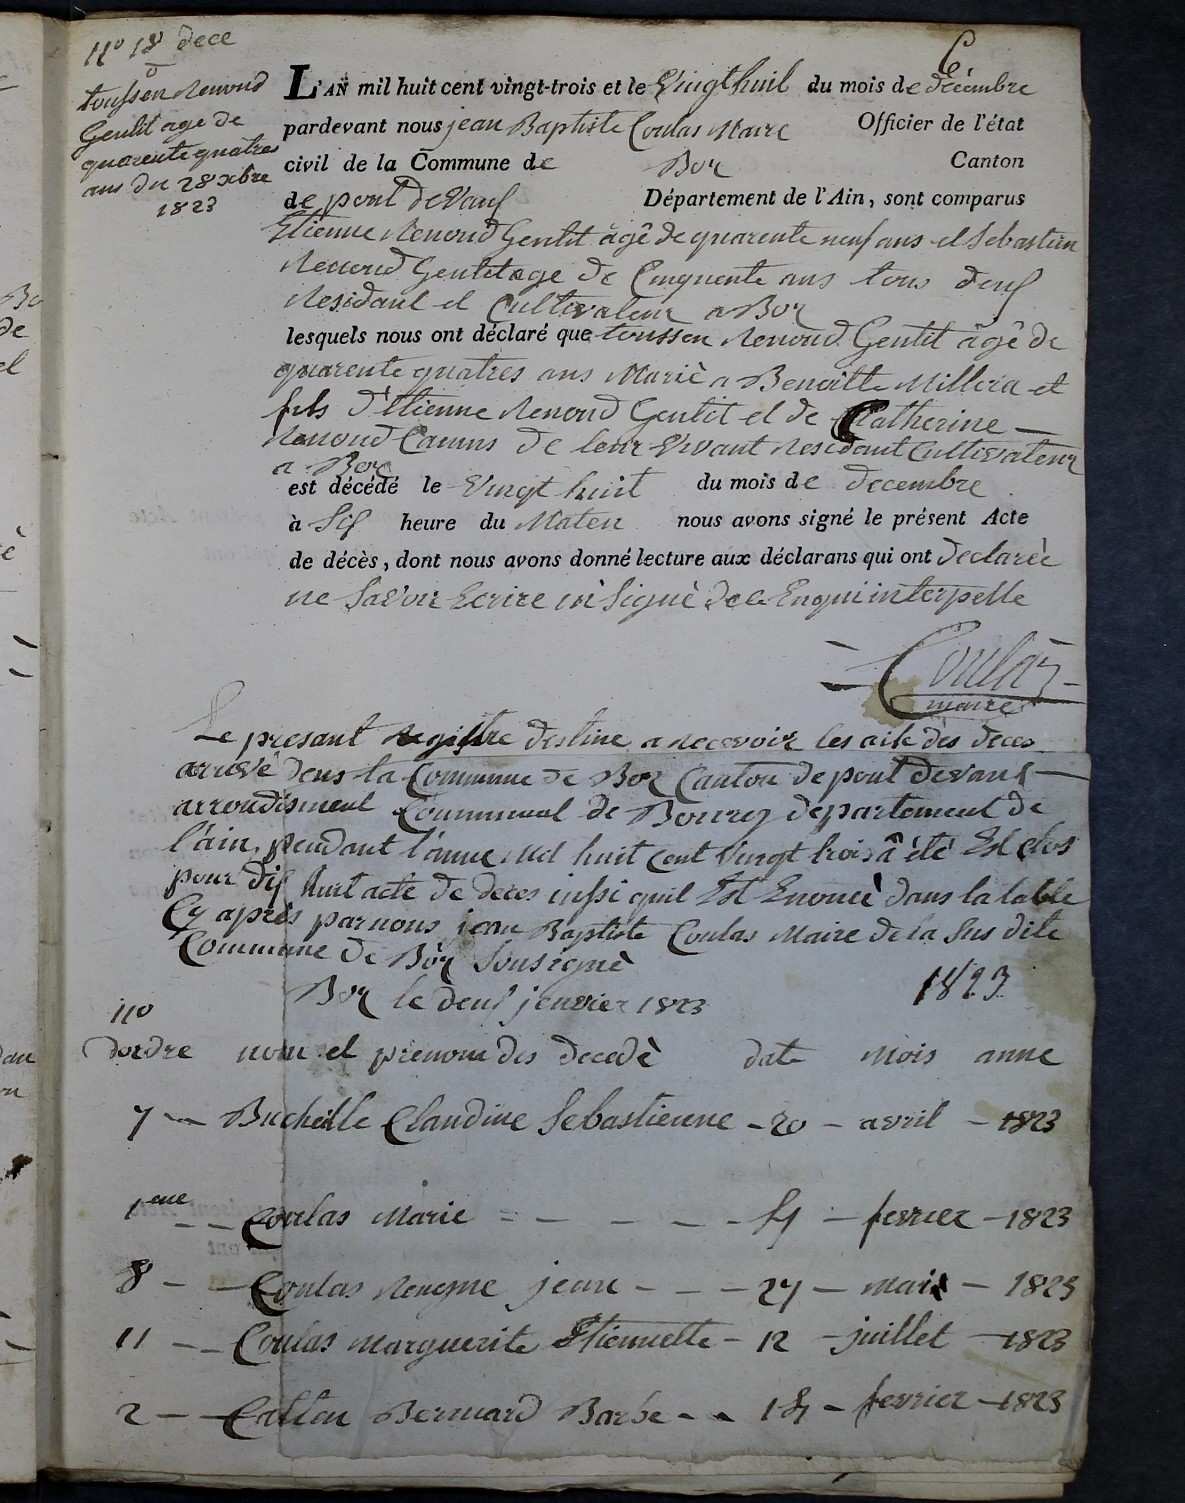 6
n° 18 dece
toussen Renoud
Gentit age de
quarente quatres
ans du 28 xbre
1823
L'AN mil huit cent vingt-trois et le Vingt huit du mois de décembre
pardevant nous jean Baptiste Coulas Maire Officier de l'état
civil de la Commune de Boz Canton
de pont de Vaux Département de l'Ain, sont comparus
Etienne Renoud Gentit âgê de quarente neuf ans et Sebastien
Renoud Gentit age de Cinquente ans tous deux
Residant et Cultivateur a Boz
lesquels nous ont déclaré que toussen Renoud Gentit âgê de
quarente quatres ans Mariè a Benoitte Millera et
fils d'Etienne Renoud Gentit et de Catherine
Renoud Camus de leur vivant Residant Cultivateur
a Boz
est décédé le Vingt huit du mois de decembre
à Six heure du Maten nous avons signé le présent Acte
de décès, dont nous avons donné lecture aux déclarans qui ont declareè
ne Savoir Ecrire ni Signè de ce Enqui interpelle
Coulas
maire
Le presant Registre destine a Recevoir les acte dès deces
arrivé dens la Commune de Boz Canton de pont devaux
arrondisment Communal de Bourg departement de
l'ain, pendant l'anne Mil huit Cent Vingt trois â étè Est clos
pour dix huit acte de deces inssi quil Est Enoncè dans la table
Cy après par nous jean Baptiste Coulas Maire de la Sus dite
Commune de Bòz Sousignè
Boz le deux jenvier 1823 1823
n°
dordre nom et prenom des decedè date mois anne
7 - Bucheille Claudine Sebastienne - 20 - avril - 1823
1eme - - Coulas Marie - - - - - - 4 - fevrier - 1823
8 - - Coulas Reneyme jean - - - 27 - mai - 1823
11 - - Coulas Marguerite Etiennette - 12 - juillet - 1823
2 - - Catton Bernard Barbe - - 14 - fevrier - 1823